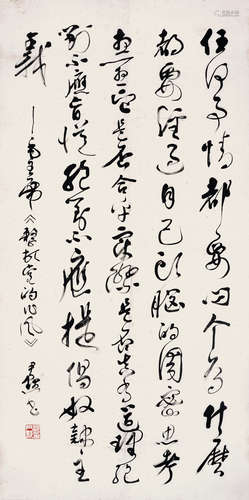 任何事情都要问个为什麽
都要经过自己头脑的周密思考
想一想它是否合乎实际是否真有道理绝
对不应盲从绝对不应提倡奴隶主
义
——毛主席《整顿党的作风》